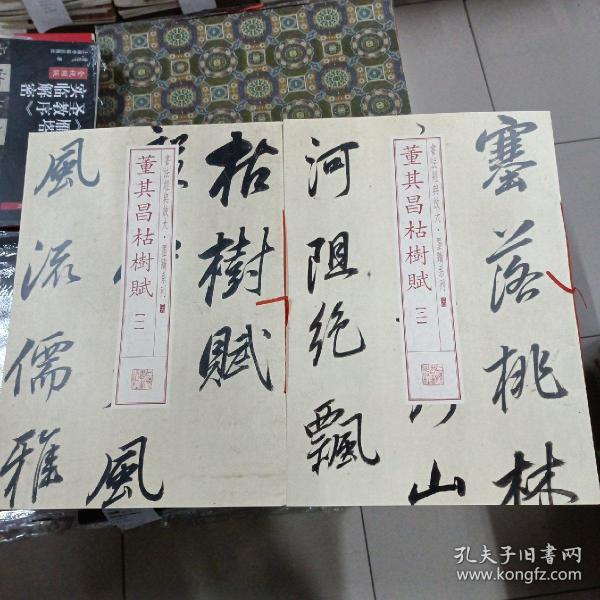 書法經典放大·墨蹟系列
董其昌枯樹賦
【一】
枯樹賦
風
風流儒雅
書法經典放大·墨蹟系列
董其昌枯樹賦
【二】
塞落桃林
山
河阻绝飄
《雁塔
圣教序》
实临解密
孔夫子旧书网
www.kongfz.com